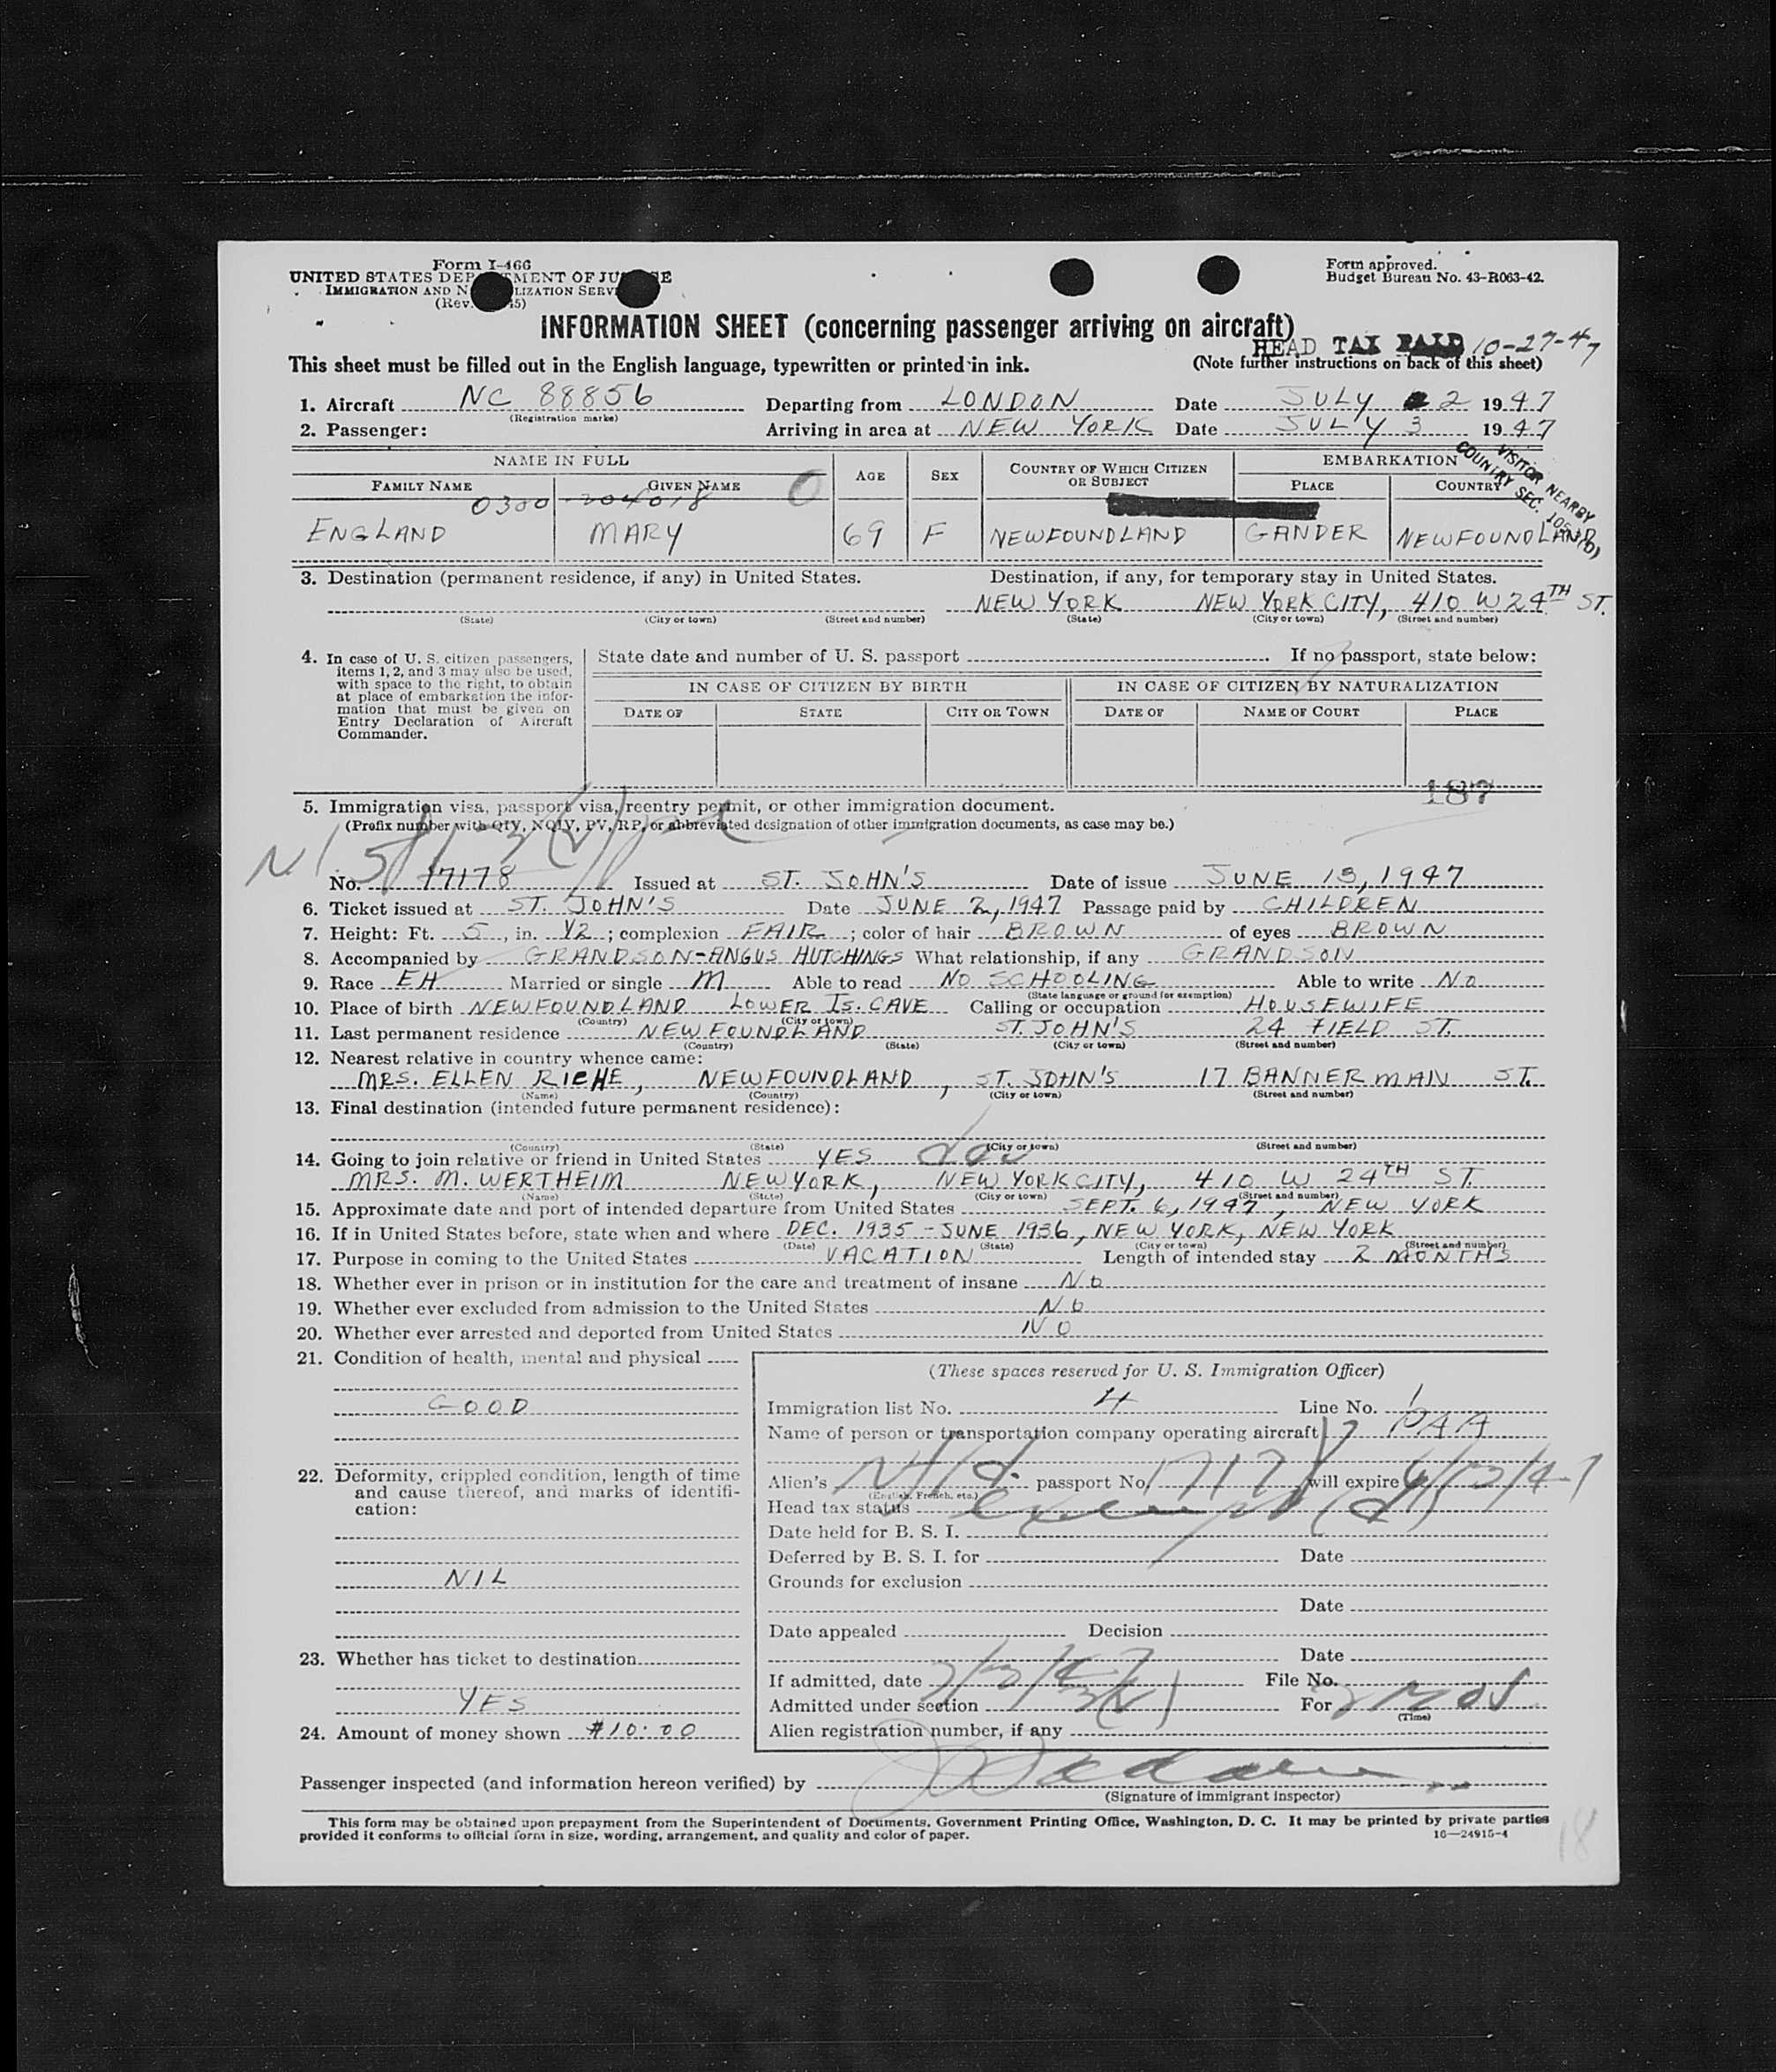 Form I-466
UNITED STATES DEPARTMENT OF JUSTICE
IMMIGRATION AND NATURALIZATION SERVICE
(Rev. 45)
Form approved.
Budget Bureau No. 43-R063-42.
INFORMATION SHEET (concerning passenger arriving on aircraft)
HEAD TAX PAID 10-27-47
This sheet must be filled out in the English language, typewritten or printed in ink. (Note further instructions on back of this sheet)
1. Aircraft NC 88856 Departing from LONDON Date JULY 2 1947
(Registration marks)
2. Passenger: Arriving in area at NEW YORK Date JULY 3 1947
VISITOR NEARBY
COUNTRY SEC.
NAME IN FULL AGE SEX COUNTRY OF WHICH CITIZEN OR SUBJECT EMBARKATION
FAMILY NAME GIVEN NAME PLACE COUNTRY
0300 204018 0
ENGLAND MARY 69 F NEWFOUNDLAND GANDER NEWFOUNDLAND
3. Destination (permanent residence, if any) in United States. Destination, if any, for temporary stay in United States.
NEW YORK NEW YORK CITY, 410 W 24TH ST.
(State) (City or town) (Street and number) (State) (City or town) (Street and number)
4. In case of U. S. citizen passengers, items 1, 2, and 3 may also be used, with space to the right, to obtain at place of embarkation the information that must be given on Entry Declaration of Aircraft Commander.
State date and number of U. S. passport If no passport, state below:
IN CASE OF CITIZEN BY BIRTH IN CASE OF CITIZEN BY NATURALIZATION
DATE OF STATE CITY OR TOWN DATE OF NAME OF COURT PLACE
187
5. Immigration visa, passport visa, reentry permit, or other immigration document.
(Prefix number with QIV, NQIV, PV, RP, or abbreviated designation of other immigration documents, as case may be.)
No. 17178 Issued at ST. JOHN'S Date of issue JUNE 13, 1947
6. Ticket issued at ST. JOHN'S Date JUNE 2, 1947 Passage paid by CHILDREN
7. Height: Ft. 5, in. 1/2; complexion FAIR; color of hair BROWN of eyes BROWN
8. Accompanied by GRANDSON-ANGUS HUTCHINGS What relationship, if any GRANDSON
9. Race EH Married or single M Able to read NO SCHOOLING Able to write NO
(State language or ground for exemption)
10. Place of birth NEWFOUNDLAND LOWER IS. CAVE Calling or occupation HOUSEWIFE
(Country) (City or town)
11. Last permanent residence NEWFOUNDLAND ST. JOHN'S 24 FIELD ST.
(Country) (State) (City or town) (Street and number)
12. Nearest relative in country whence came:
MRS. ELLEN RICHE, NEWFOUNDLAND, ST. JOHN'S 17 BANNERMAN ST.
(Name) (Country) (City or town) (Street and number)
13. Final destination (intended future permanent residence):
(Country) (State) (City or town) (Street and number)
14. Going to join relative or friend in United States YES dau
MRS. M. WERTHEIM NEW YORK, NEW YORK CITY, 410 W 24TH ST.
(Name) (State) (City or town) (Street and number)
15. Approximate date and port of intended departure from United States SEPT. 6, 1947, NEW YORK
16. If in United States before, state when and where DEC. 1935 - JUNE 1936, NEW YORK, NEW YORK
(Date) (State) (City or town) (Street and number)
17. Purpose in coming to the United States VACATION Length of intended stay 2 MONTHS
18. Whether ever in prison or in institution for the care and treatment of insane NO
19. Whether ever excluded from admission to the United States NO
20. Whether ever arrested and deported from United States NO
21. Condition of health, mental and physical
GOOD
22. Deformity, crippled condition, length of time and cause thereof, and marks of identification:
NIL
23. Whether has ticket to destination
YES
24. Amount of money shown $10.00
(These spaces reserved for U. S. Immigration Officer)
Immigration list No. 4 Line No. 1
Name of person or transportation company operating aircraft PAA
Alien's Nfld. passport No. 17178 will expire 6/13/47
(English, French, etc.)
Head tax status exempt (d)
Date held for B. S. I.
Deferred by B. S. I. for Date
Grounds for exclusion
Date
Date appealed Decision
Date
If admitted, date 7/3/47 File No.
Admitted under section 3(2) For 2 mos
(Time)
Alien registration number, if any
Passenger inspected (and information hereon verified) by
(Signature of immigrant inspector)
This form may be obtained upon prepayment from the Superintendent of Documents, Government Printing Office, Washington, D. C. It may be printed by private parties
provided it conforms to official form in size, wording, arrangement, and quality and color of paper. 16—24915-4
18